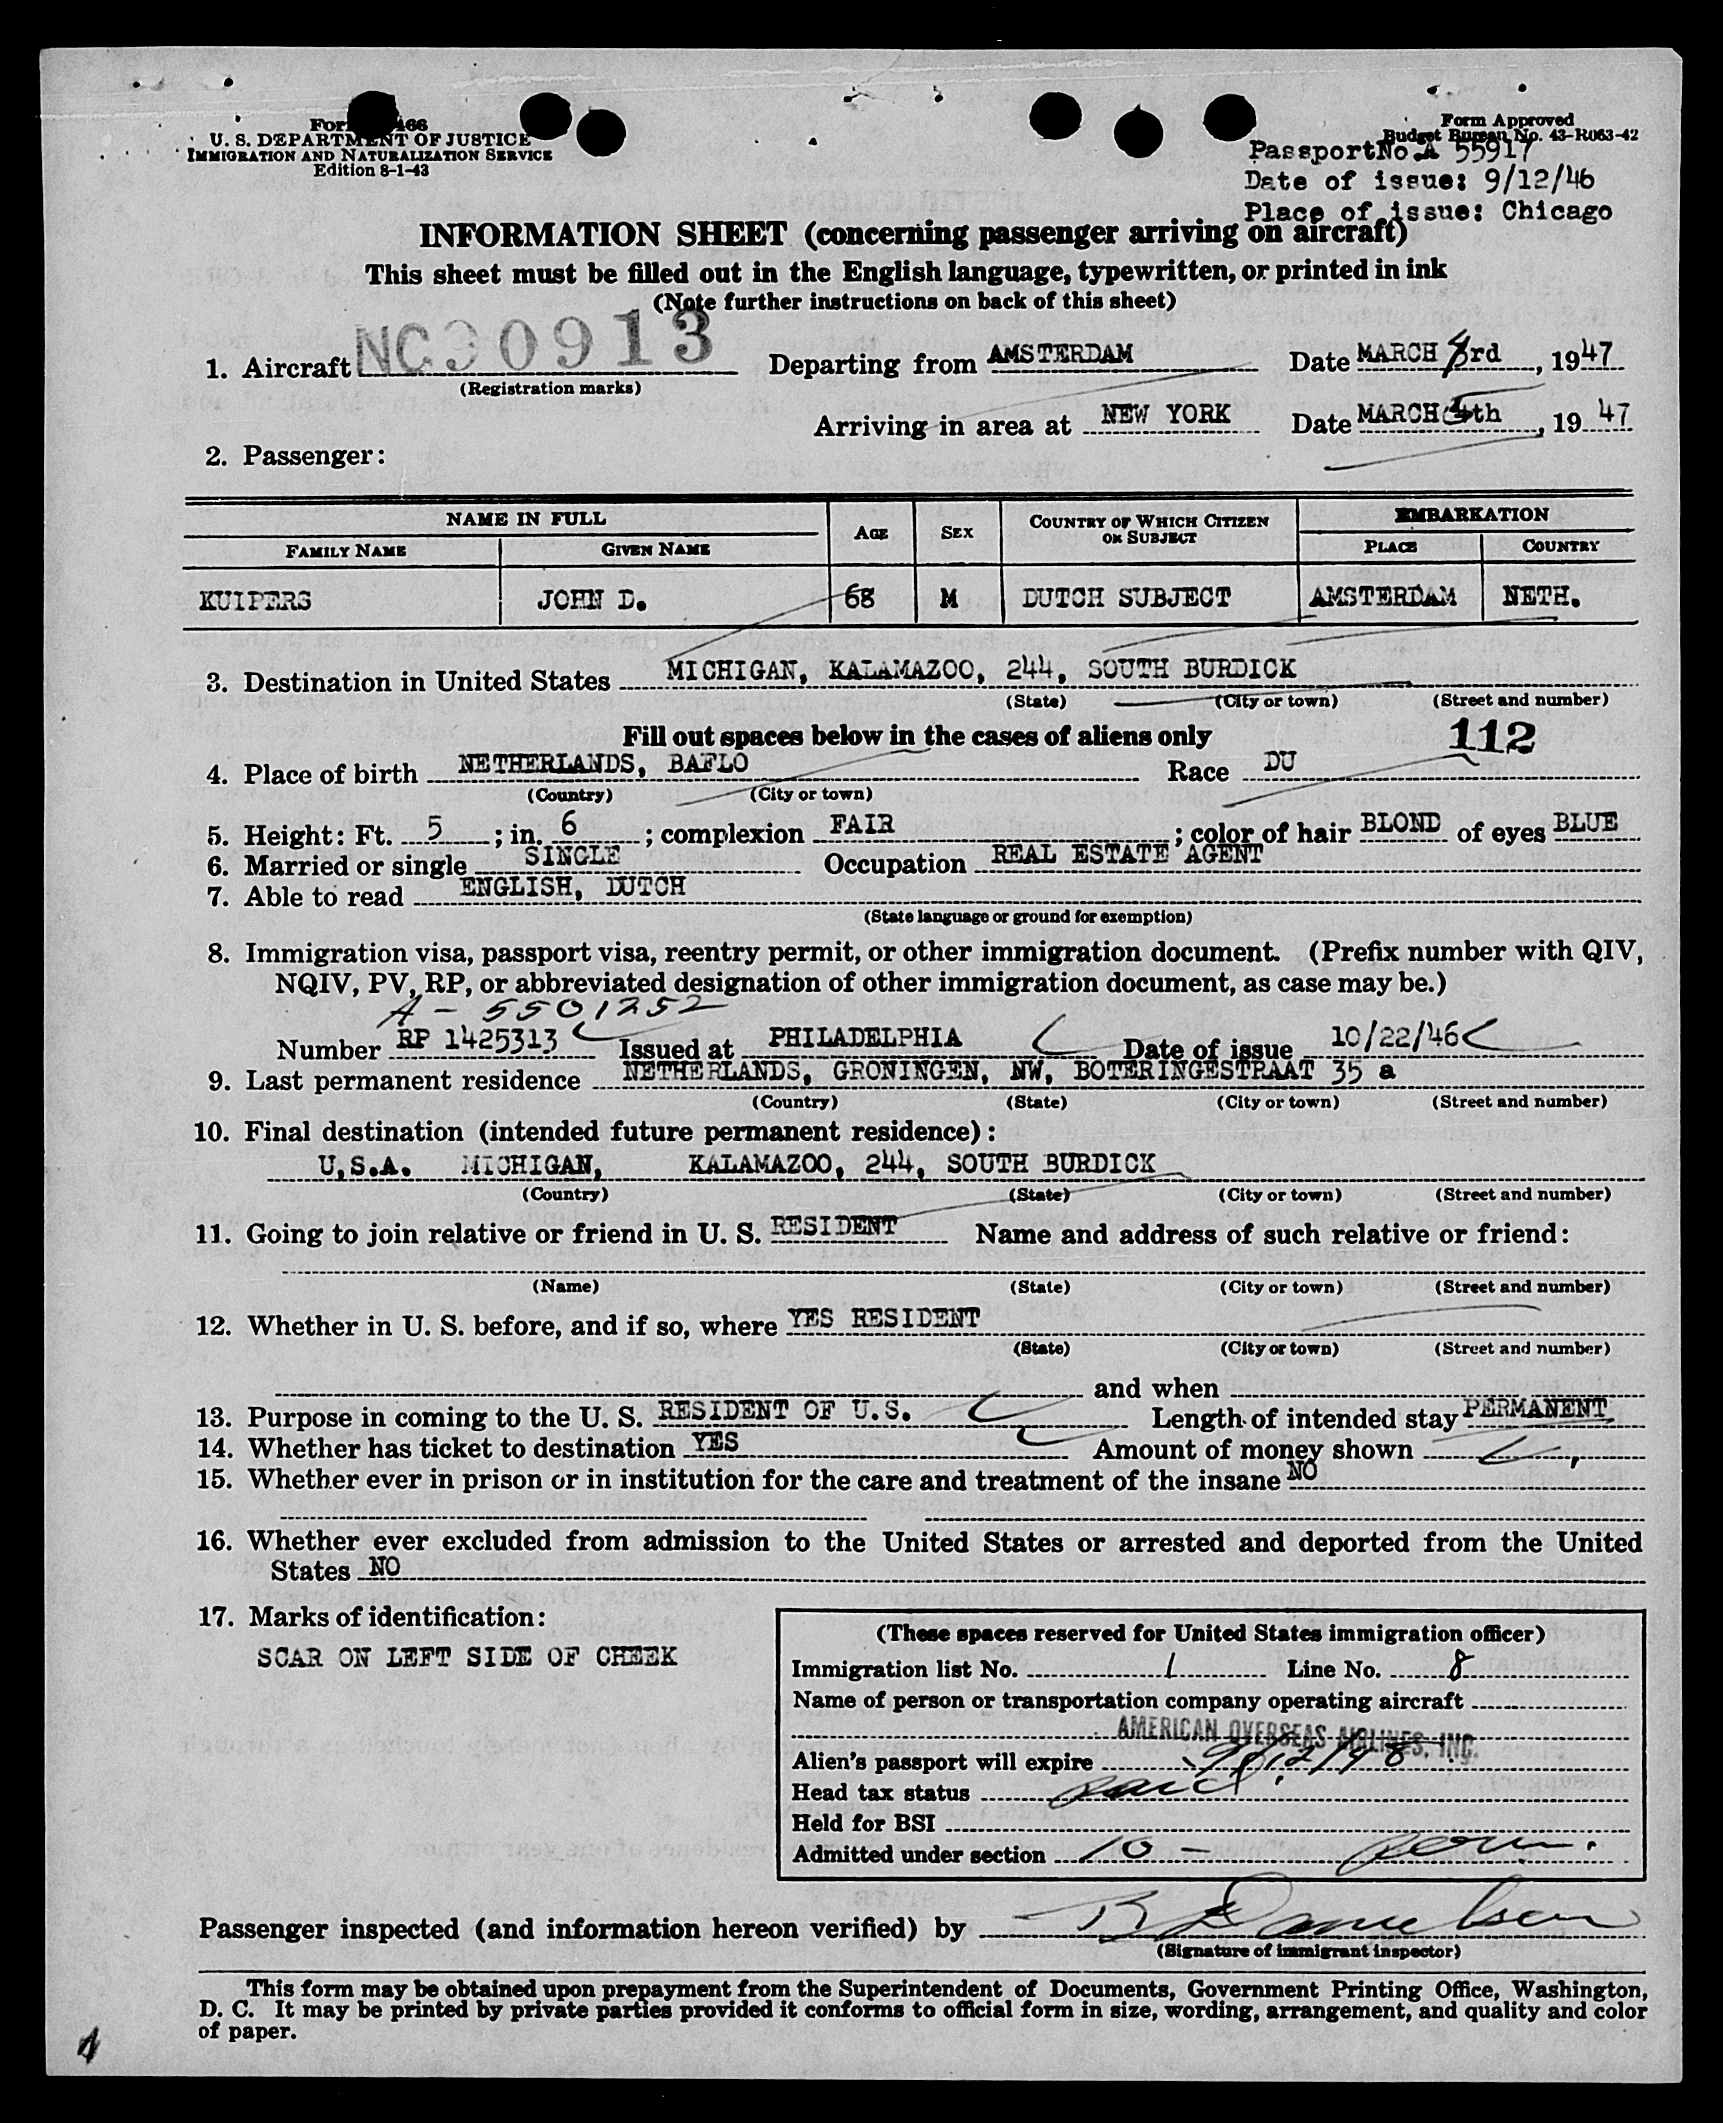 Form Approved
Budget Bureau No. 43-R063-42
U. S. DEPARTMENT OF JUSTICE
IMMIGRATION AND NATURALIZATION SERVICE
Edition 8-1-43
PassportNo.A 55917
Date of issue: 9/12/46
Place of issue: Chicago
INFORMATION SHEET (concerning passenger arriving on aircraft)
This sheet must be filled out in the English language, typewritten, or printed in ink
(Note further instructions on back of this sheet)
1. Aircraft NC90913 Departing from AMSTERDAM Date MARCH rd, 1947
(Registration marks)
Arriving in area at NEW YORK Date MARCH th, 1947
2. Passenger:
NAME IN FULL AGE SEX COUNTRY OF WHICH CITIZEN OR SUBJECT EMBARKATION
FAMILY NAME GIVEN NAME PLACE COUNTRY
KUIPERS JOHN D. 68 M DUTCH SUBJECT AMSTERDAM NETH.
3. Destination in United States MICHIGAN, KALAMAZOO, 244, SOUTH BURDICK
(State) (City or town) (Street and number)
Fill out spaces below in the cases of aliens only 112
4. Place of birth NETHERLANDS, BAFLO Race DU
(Country) (City or town)
5. Height: Ft. 5; in. 6; complexion FAIR; color of hair BLOND of eyes BLUE
6. Married or single SINGLE Occupation REAL ESTATE AGENT
7. Able to read ENGLISH, DUTCH
(State language or ground for exemption)
8. Immigration visa, passport visa, reentry permit, or other immigration document. (Prefix number with QIV,
NQIV, PV, RP, or abbreviated designation of other immigration document, as case may be.)
A - 5501252
Number RP 1425313 Issued at PHILADELPHIA Date of issue 10/22/46
9. Last permanent residence NETHERLANDS, GRONINGEN, NW, BOTERINGESTRAAT 35 a
(Country) (State) (City or town) (Street and number)
10. Final destination (intended future permanent residence):
U.S.A. MICHIGAN, KALAMAZOO, 244, SOUTH BURDICK
(Country) (State) (City or town) (Street and number)
11. Going to join relative or friend in U. S. RESIDENT Name and address of such relative or friend:
(Name) (State) (City or town) (Street and number)
12. Whether in U. S. before, and if so, where YES RESIDENT
(State) (City or town) (Street and number)
and when
13. Purpose in coming to the U. S. RESIDENT OF U.S. Length of intended stay PERMANENT
14. Whether has ticket to destination YES Amount of money shown
15. Whether ever in prison or in institution for the care and treatment of the insane NO
16. Whether ever excluded from admission to the United States or arrested and deported from the United
States NO
17. Marks of identification:
SCAR ON LEFT SIDE OF CHEEK
(These spaces reserved for United States immigration officer)
Immigration list No. 1 Line No. 8
Name of person or transportation company operating aircraft
AMERICAN OVERSEAS AIRLINES, INC.
Alien's passport will expire 9/12/48
Head tax status paid.
Held for BSI
Admitted under section 10 - perm.
Passenger inspected (and information hereon verified) by B Danielson
(Signature of immigrant inspector)
This form may be obtained upon prepayment from the Superintendent of Documents, Government Printing Office, Washington,
D. C. It may be printed by private parties provided it conforms to official form in size, wording, arrangement, and quality and color
of paper.